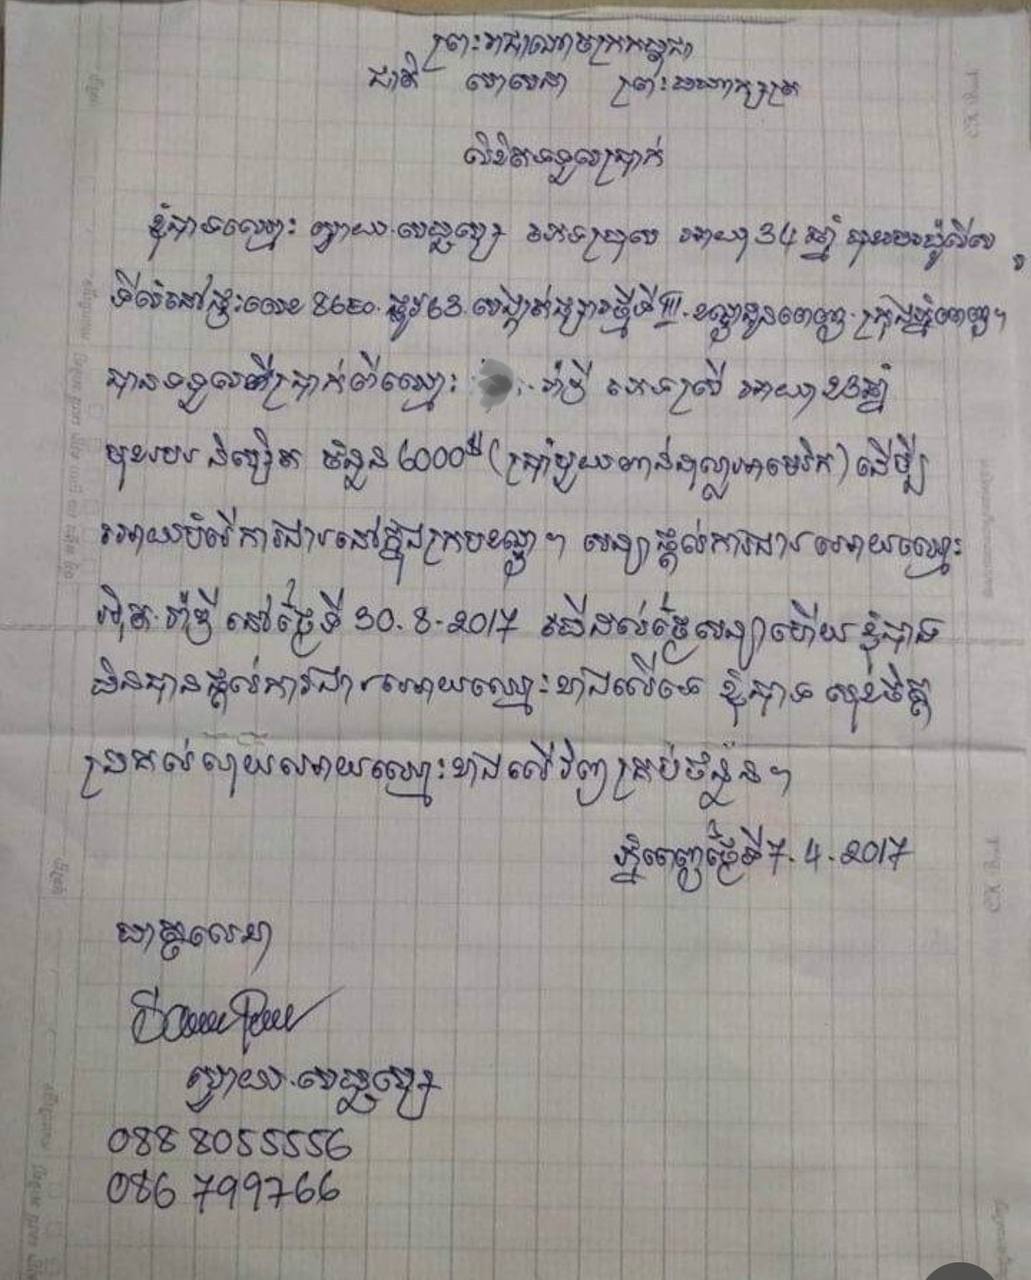 ព្រះរាជាណាចក្រកម្ពុជា
ជាតិ សាសនា ព្រះមហាក្សត្រ
លិខិតទទួលប្រាក់
ខ្ញុំបាទឈ្មោះ ភេទប្រុស អាយុ 34 ឆ្នាំ មុខរបរប៉ូលីស
ទីលំនៅផ្ទះលេខ ផ្លូវ 63 សង្កាត់ផ្សារថ្មីទី III ខណ្ឌដូនពេញ ក្រុងភ្នំពេញ។
បានទទួលប្រាក់ពីឈ្មោះ រ៉ាវី ភេទស្រី អាយុ 23 ឆ្នាំ
មុខរបរ និស្សិត ចំនួន 6000$ (ប្រាំមួយពាន់ដុល្លាអាមេរិក) ដើម្បី
អោយបំរើការងារនៅក្នុងក្របខណ្ឌ។ សន្យាផ្តល់ការងារអោយឈ្មោះ
រ៉ាវី នៅថ្ងៃទី 30.8.2017 បើដល់ថ្ងៃសន្យាហើយ ខ្ញុំបាទ
មិនបានផ្តល់ការងារអោយឈ្មោះខាងលើទេ ខ្ញុំបាទ សុខចិត្ត
ប្រគល់លុយអោយឈ្មោះខាងលើវិញគ្រប់ចំនួន។
ភ្នំពេញថ្ងៃទី 7.4.2017
ហត្ថលេខា
088 8055556
086 799766